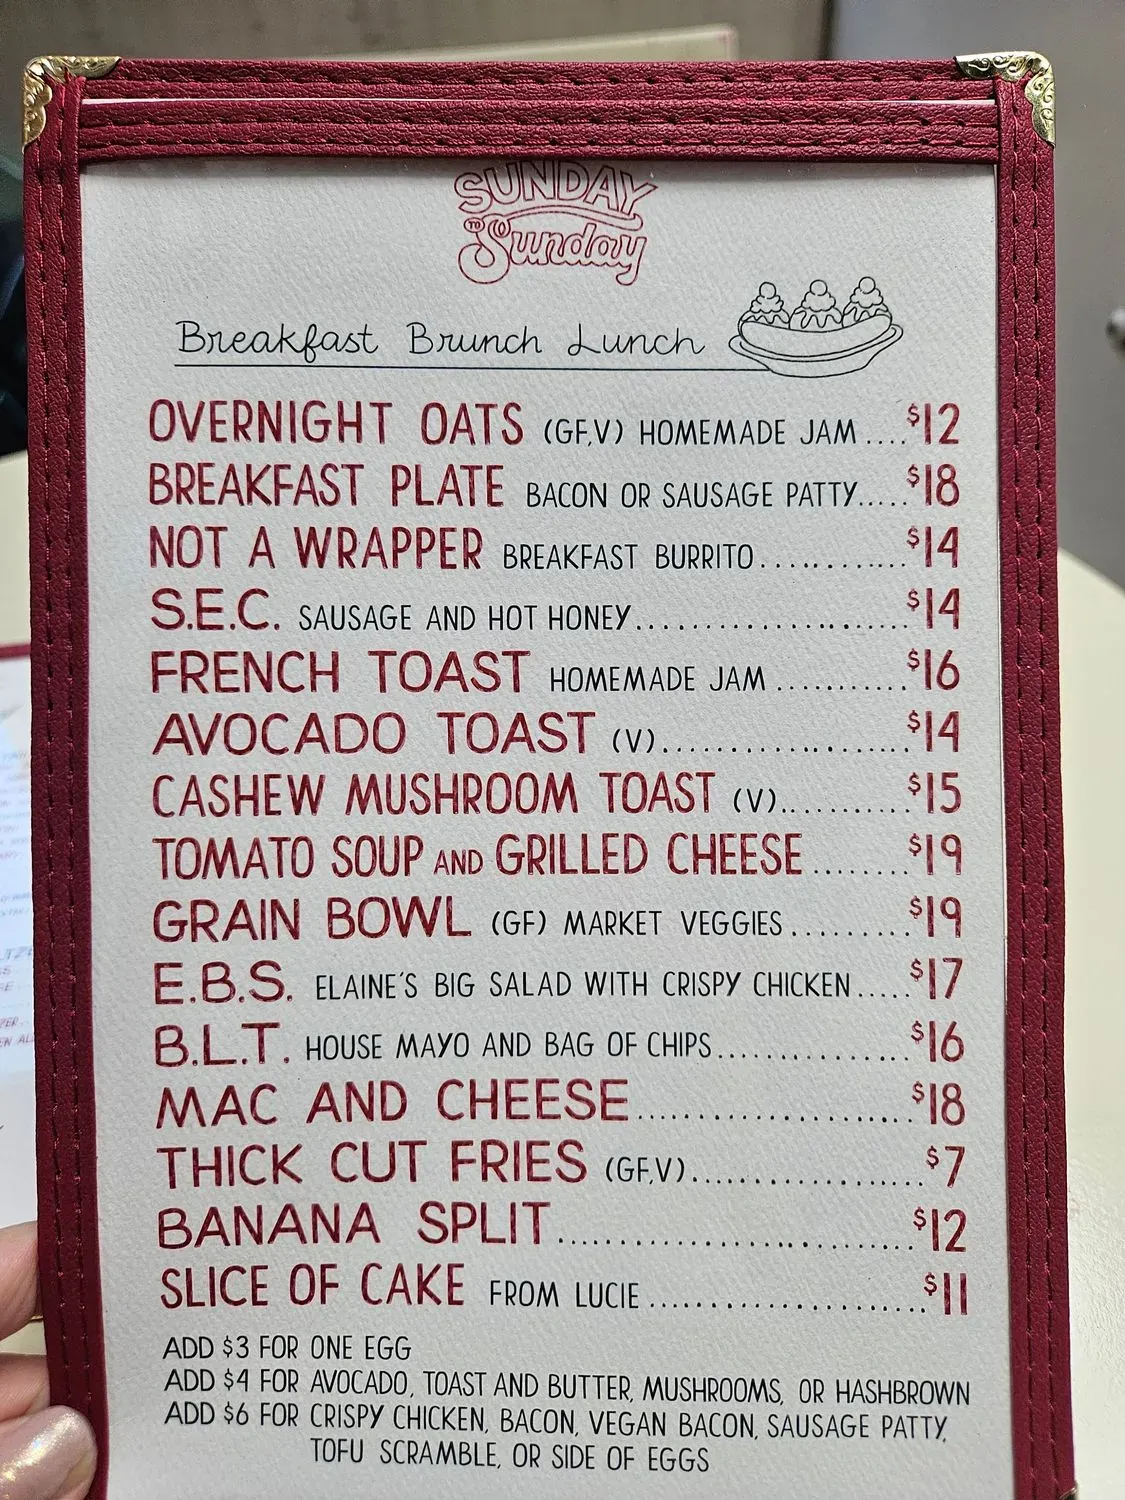 SUNDAY
TO Sunday
Breakfast Brunch Lunch
OVERNIGHT OATS (GF,V) HOMEMADE JAM ....$12
BREAKFAST PLATE BACON OR SAUSAGE PATTY.....$18
NOT A WRAPPER BREAKFAST BURRITO..............$14
S.E.C. SAUSAGE AND HOT HONEY.........................$14
FRENCH TOAST HOMEMADE JAM ............$16
AVOCADO TOAST (V)......................$14
CASHEW MUSHROOM TOAST (V)...........$15
TOMATO SOUP AND GRILLED CHEESE ........$19
GRAIN BOWL (GF) MARKET VEGGIES .........$19
E.B.S. ELAINE'S BIG SALAD WITH CRISPY CHICKEN.....$17
B.L.T. HOUSE MAYO AND BAG OF CHIPS.................$16
MAC AND CHEESE.......................$18
THICK CUT FRIES (GF,V)....................$7
BANANA SPLIT..............................$12
SLICE OF CAKE FROM LUCIE ........................$11
ADD $3 FOR ONE EGG
ADD $4 FOR AVOCADO, TOAST AND BUTTER, MUSHROOMS, OR HASHBROWN
ADD $6 FOR CRISPY CHICKEN, BACON, VEGAN BACON, SAUSAGE PATTY,
TOFU SCRAMBLE, OR SIDE OF EGGS